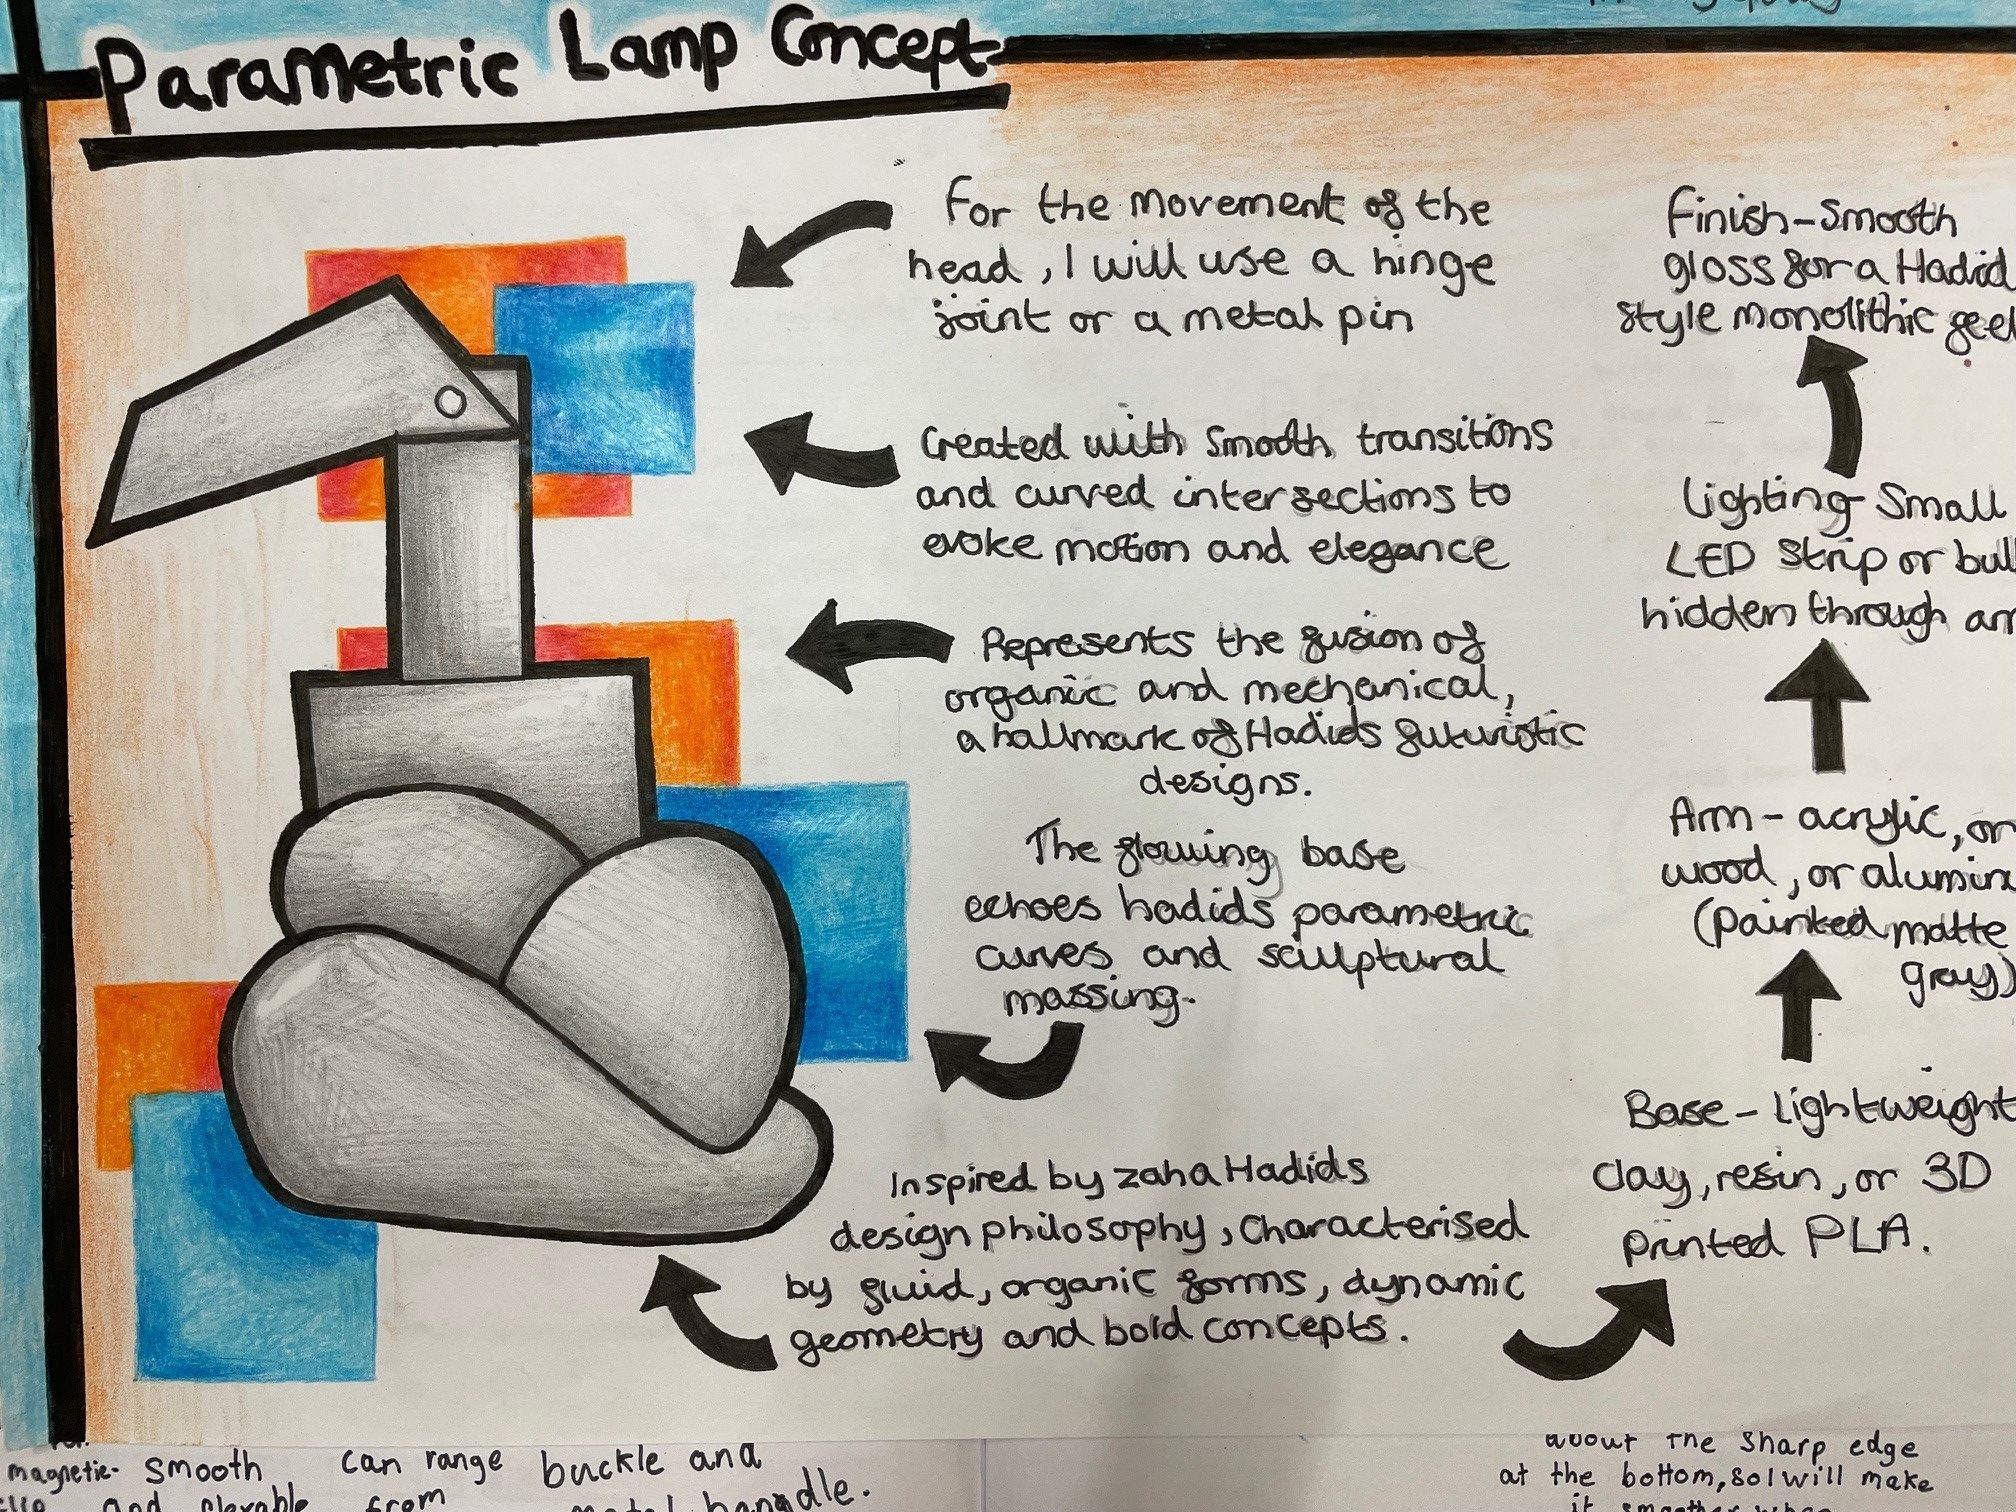 Parametric Lamp Concept-
For the movement of the
head, I will use a hinge
joint or a metal pin
Created with smooth transitions
and curved intersections to
evoke motion and elegance
Represents the fusion of
organic and mechanical,
a hallmark of Hadids futuristic
designs.
The flowing base
echoes hadids parametric
curves and sculptural
massing.
Inspired by zaha Hadids
design philosophy, Characterised
by fluid, organic forms, dynamic
geometry and bold concepts.
Finish-Smooth
gloss for a Hadid
style monolithic feel
Lighting-Small
LED Strip or bul
hidden through
Arm - acrylic, or
wood, or alumin
(painted matte
gray)
Base - lightweight
clay, resin, or 3D
printed PLA.
magnetic- smooth
and flexable
can range
from
buckle and
metal handle.
about the Sharp edge
at the bottom, so I will make
it smoother when